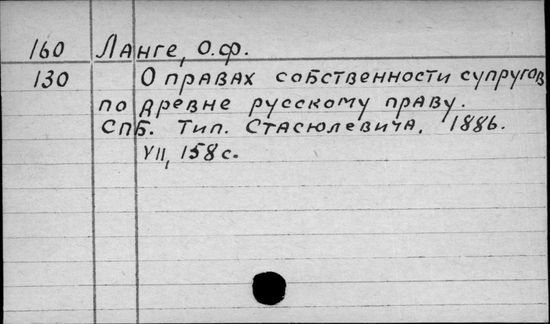 160 Ланге, О.Ф.
130 О правах собственности супругов
по древне русскому праву.
СПБ. Тип. Стасюлевича, 1886.
VII, 158 с.